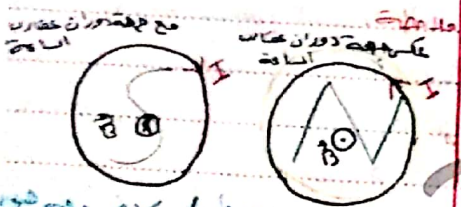 ملاحظة
عكس جهة دوران عقارب
الساعة
I
N
B
مع جهة دوران عقارب
الساعة
I
S
B